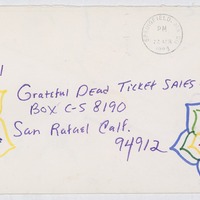 PM
1983
Grateful Dead Ticket Sales
Box C-S 8190
San Rafael Calf.
94912